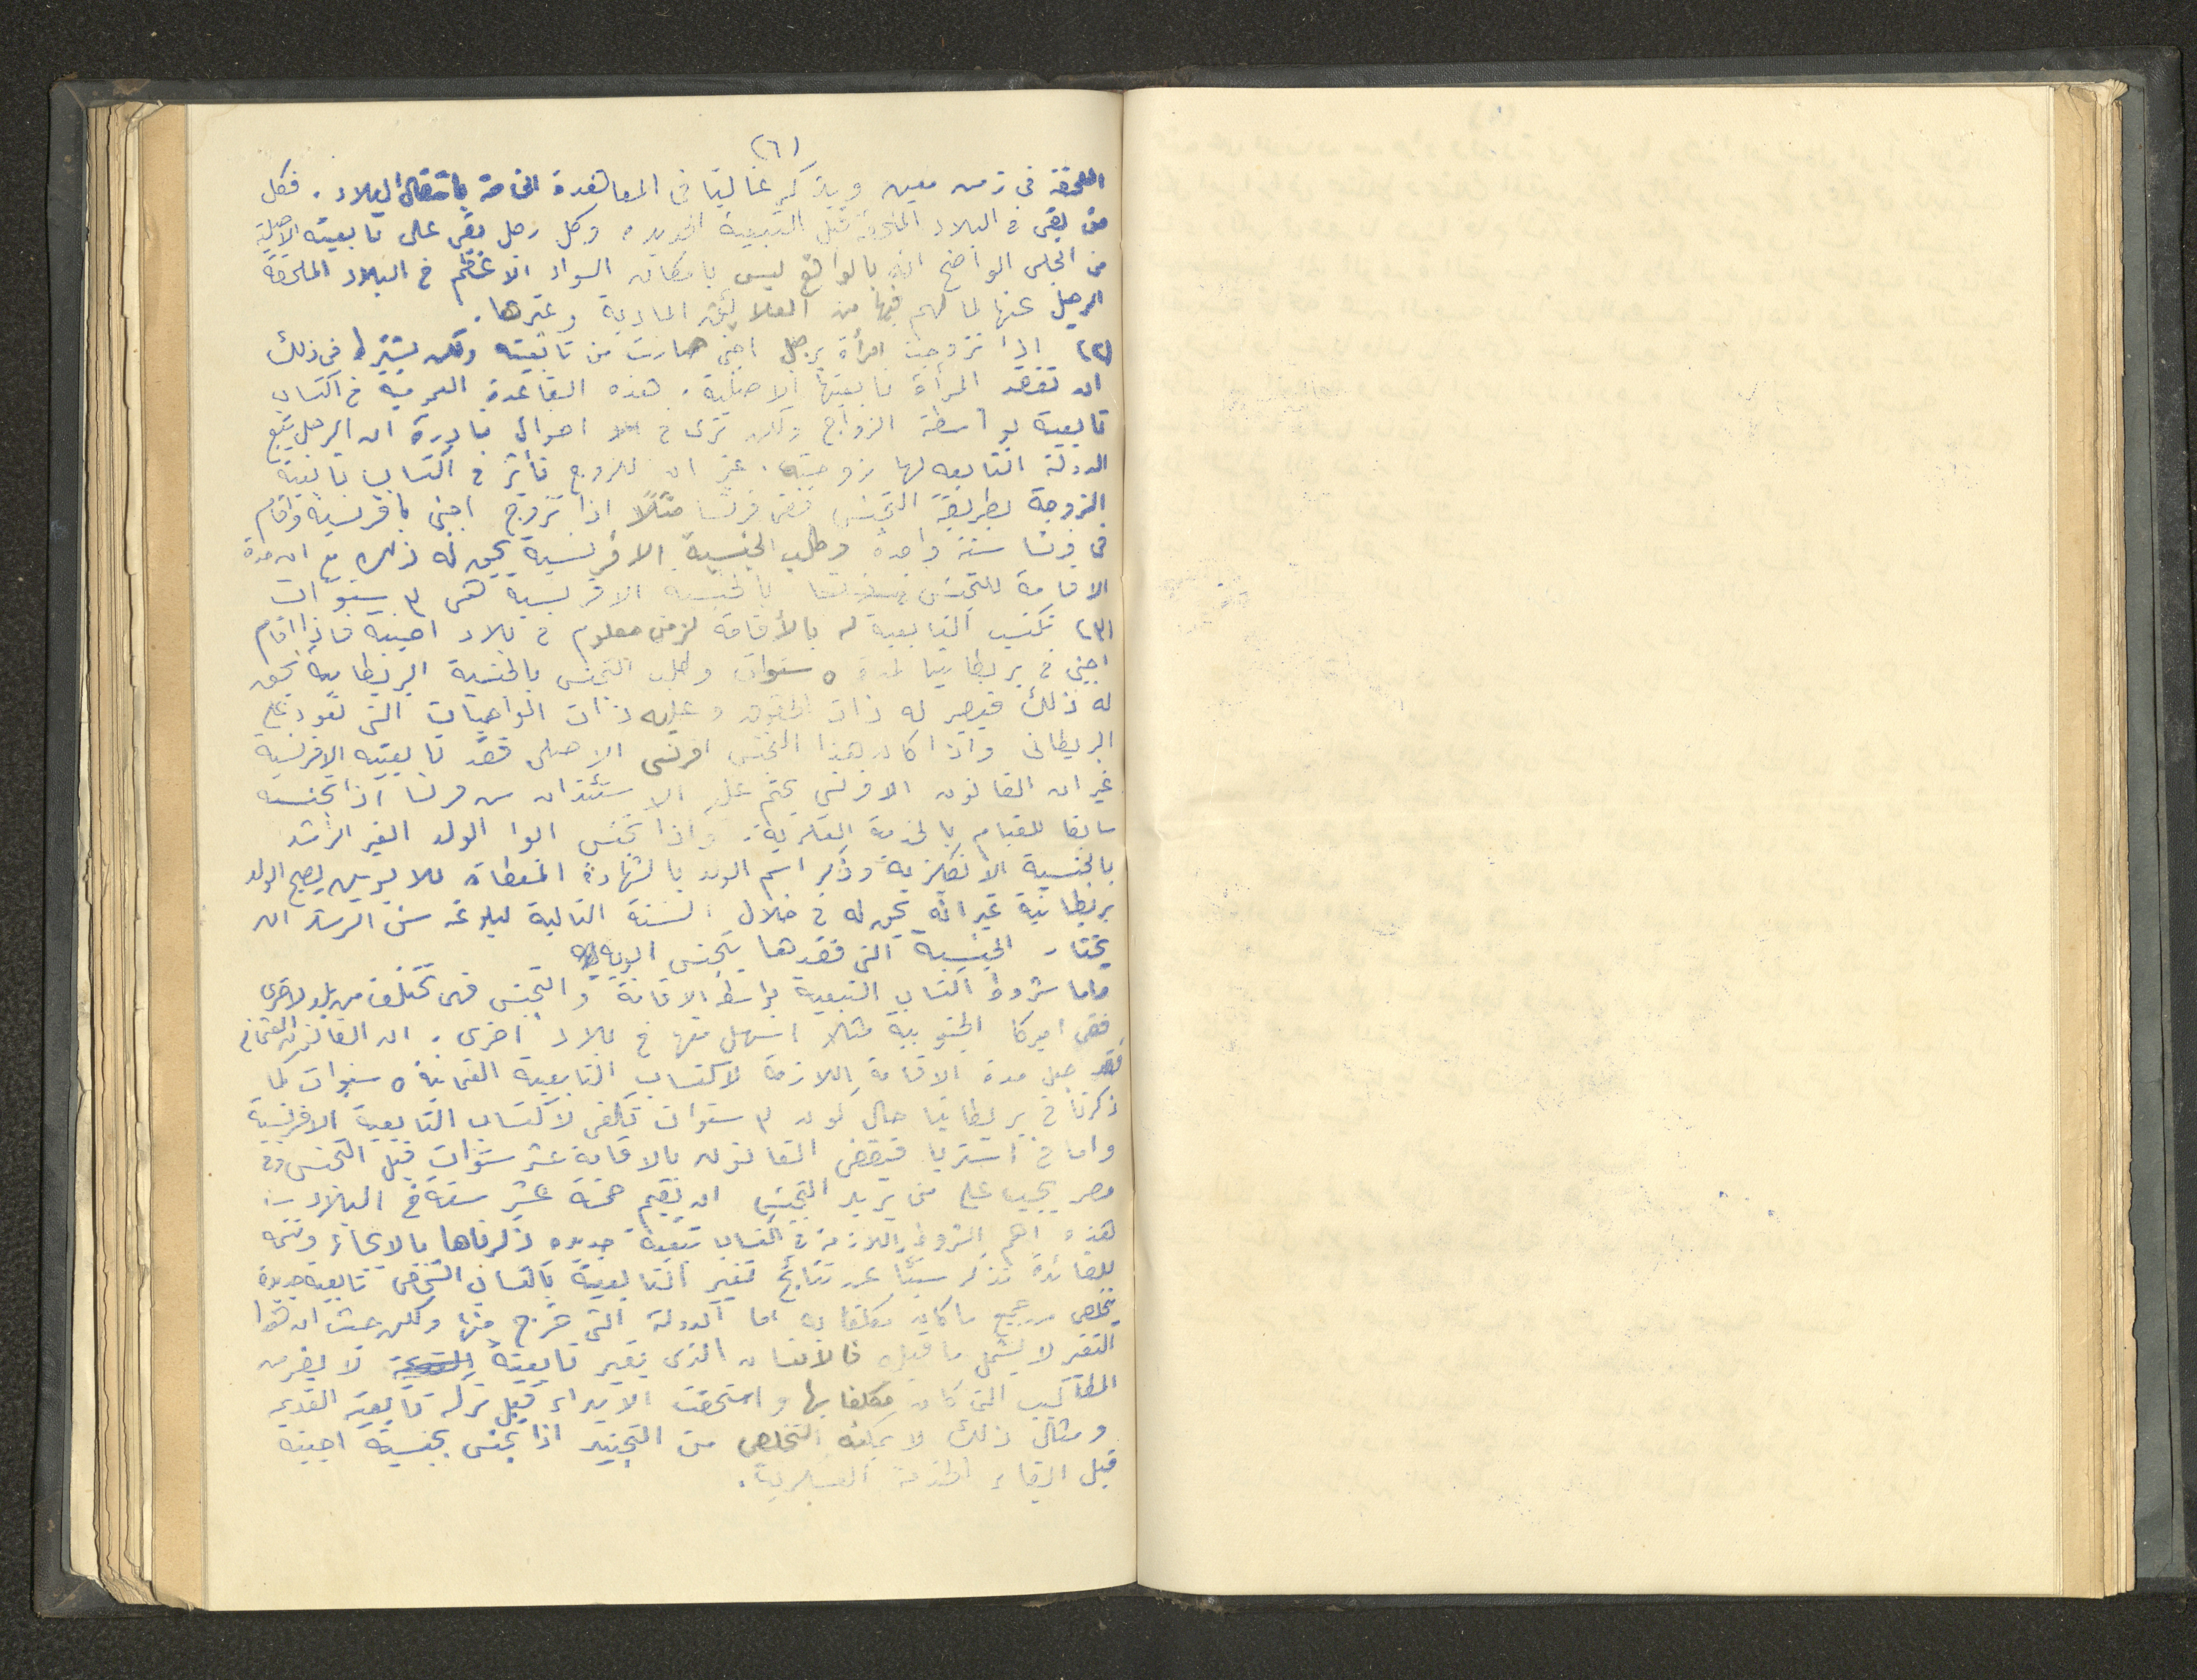 (٦)
الملحقة في زمن معين ويذكر غالبا في المعاهدة الخاصة بانتقال البلاد . فكل
من بقى في البلاد الملحقة قبل التبعية الجديده وكل رحل بقى على تابعيته الاصلية
من الجلي الواضح انه بالواقع ليس بامكان السواد الاعظم في البلاد الملحقة
الرحيل عنها لما لهم فيها من العلائق المادية وغيرها .
(٢) اذا تزوجت امرأة برجل اجنبي صارت من تابعيته ولكن يشترط في ذلك
ان تفقد المرأة تابعيتها الاصلية . هذه القاعدة العمومية في اكتساب
تابعية بواسطة الزواج ولكن نرى في احوال نادرة ان الرجل يتبع
الدولة التابعه لها زوجته . غير ان للزوج تأثير في اكتساب تابعية
الزوجة بطريقة التجنس ففي فرنسا مثلاً اذا تزوج اجنبي بافرنسية واقام
في فرنسا سنة واحدة وطلب الجنسية الافرنسية يحق له ذلك مع ان مدة
الاقامة للتجنس بالجنسية الافرنسية هي ٣ سنوات
(٣) تكتسب التابعية بالأقامة لزمن معلوم في بلاد اجنبية فاذا اقام
اجنبي في بريطانيا لمدة ٥ سنوات وطلب التجنس بالجنسية البريطانية يحق
له ذلك فيصير له ذات الحقوق وعليه ذات الواجبات التي تعود على
البريطاني واذا كان هذا المتجنس افرنسي الاصلى فقد تابعيته الافرنسية
غير ان القانون الافرنسي يحتم عليه الاستئذان من فرنسا اذا تجنسه
سابقا للقيام بالخدمة العسكرية . واذا تجنس ابوا الولد الغير الراشد
بالجنسية الانكلزية وذكر اسم الولد بالشهادة المعطاة للابوين يصبح الولد
بريطانية غير انه يحق له في خلال السنة التالية لبلوغه سن الرشد ان
يختار الجنسية التي فقدها بتجنس ابويه
واما شروط اكتساب التبعية بواسطة الاقامة والتجنس فهي تختلف من بلد لاخرى
ففي اميركا الجنوبية مثلا اسهل منها في بلاد اخرى . ان القانون العثماني
فقد جعل مدة الاقامة اللازمة لاكتساب التابعية العثمانية ٥ سنوات كما
ذكرنا في بريطانيا حال كون ٣ سنوات تكفى لاكتساب التابعية الافرنسية
واما في استريا فيقضي القانون بالاقامة عشر سنوات قبل التجنس وفي
مصر يجب على من يريد التجنس ان يقيم خمسة عشر سنة في البلاد
هذه اهم الشروط اللازمة في اكتساب تبعية جديده ذكرناها بالايجاز وتتمه
للفائدة نذكر شيئا عن نتائج تغيير التابعية باكتساب الشخص تابعية جديدة
يتخلص من جميع ما كان مكلفا به اما الدولة التي خرج منها ولكن حيث ان هذا
التغير لا يشمل ما قبله فالانسان الذي يغير تابعيته لا يفر من
المطاليب التي كان مكلفا بها واستحقت الايراء قبل تركه تابعيته القديمه
ومثال ذلك لا يمكنه التخلص من التجنيد اذا تجنس بجنسية اجنبية
قبل ايفاء الخدمة العسكرية .